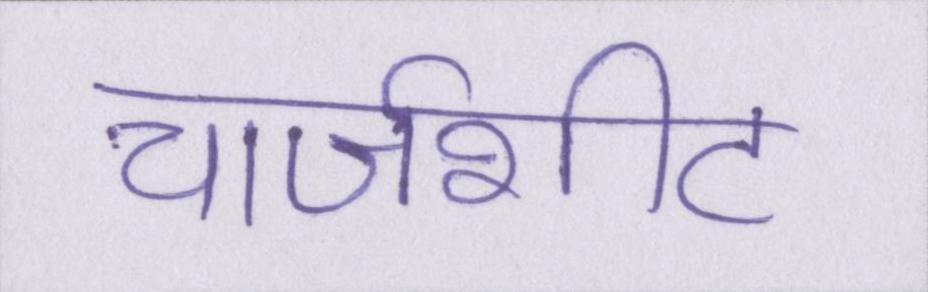 चार्जशीट